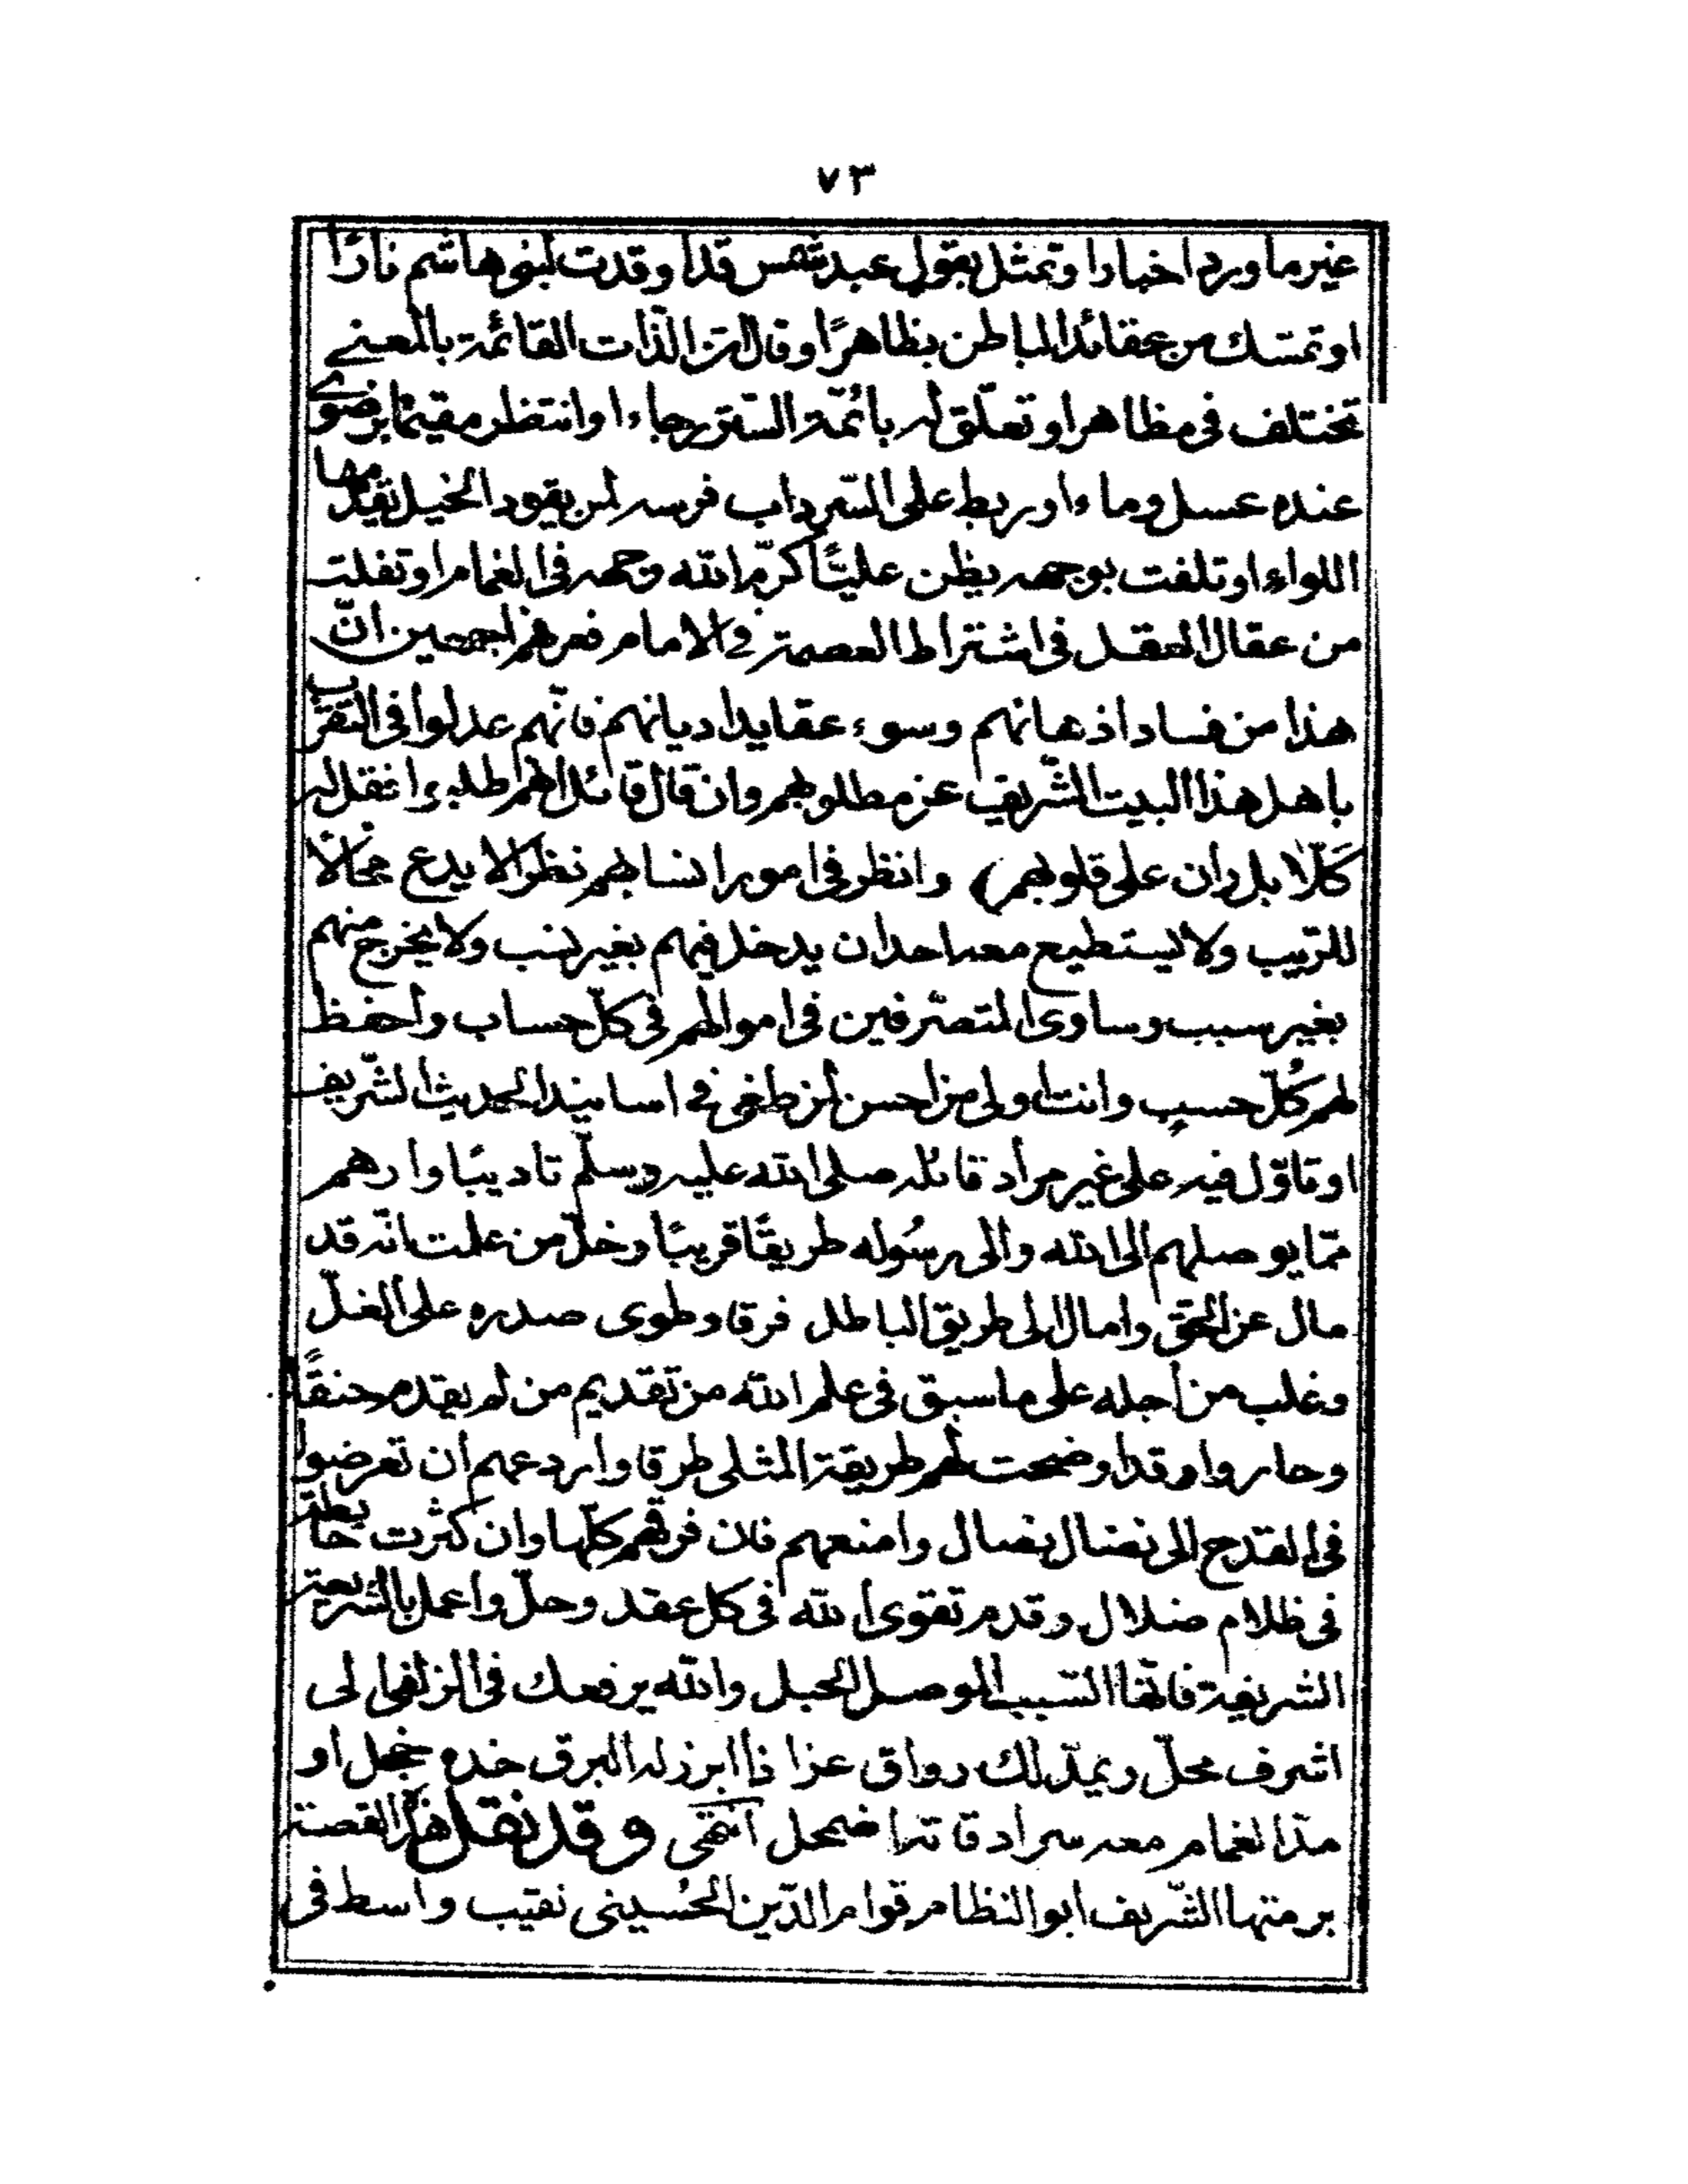 ٧٣
غير ما ورد اخبارا وتمثل بقول عبد شمس قدا وقدت لبنو هاشم نارًا
او تمسّك من عقائد الباطن بظاهرًا وقال انّ الذّات القائمة بالمعنے
تختلف فى مظاهرا وتعلّق له بائمّة السّتر رجاء او انتظر مقيمًا برضوے
عنده عسل وماء او ربط على السّرداب فرسه لمن يقود الخيل يقدمها
اللواء او تلفت بوجهه يظن عليًّا كرّم الله وجهه فى الغمام او تفلت
من عقال العقل فى اشتراط العصمة فے الامام فعرفهم اجمعين انّ
هذا من فساد اذهانهم وسوء عقايد اديانهم فانّهم عدلوا فى التقرّب
باهل هذا البيت الشّريف عن مطلوبهم وان قال قائل انهم طلبوا فقل له
كَلّا بل ران على قلوبهم) وانظر فى امور انسابهم نظرا لا يدع مجالًا
للرّيب ولا يستطيع معه احد ان يدخل فيهم بغير نسب ولا يخرج منهم
بغير سبب وساوى المتصّرفين فى اموالهم فى كلّ حساب واحفظ
لهم كُلّ حسب وانت اولى من احسن لمن طغى فے اسانيد الحديث الشّريف
او تاوّل فيه على غير مراد قائله صلى الله عليه وسلّم تاديبًا وارهم
ممّا يوصلهم الى الله والى رسُوله طريقًا قريبًا وخلّ من علمت انّه قد
مال عن الحّق وامال الى طريق الباطل فرقا وطوى صدره على الغلّ
وغلب من اجله على ما سبق فى علم الله من تقديم من لم يقدم حنقًا
وحاروا وقد اوضحت لهم طريقة المثلى طرقا واردعهم ان تعرضوا
فى القدح الى نضال نصال وامنعهم فان فرقهم كلّها وان كثرت خابطة
فى ظلام ضلال وقدم تقوى الله فى كل عقد وحلّ واعمل بالشّريعة
الشريفة فانّها السّبب الموصل الحبل والله يرفعك فى الزلفى الى
اشرف محلّ ويمدّ لك رواق عز اذا ابرز له البرق خده خجل او
مدّ الغمام معه سرادقاته اضمحل انتهى وقد نقل هذه القصة
برمتها الشّريف ابو النظام قوام الدّين الحُسينى نقيب واسط فى